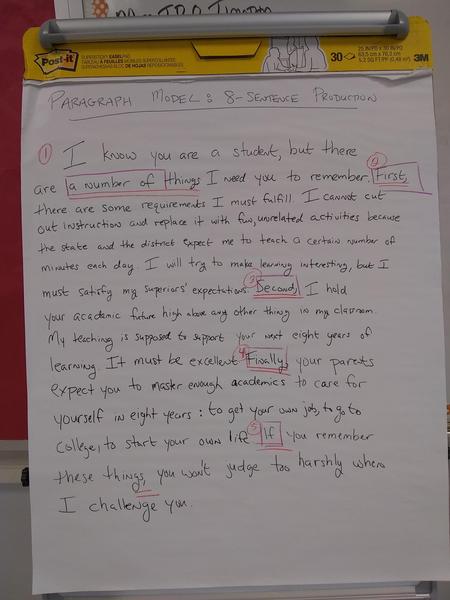 Post-it
SUPERSTICKY EASEL PAD
30
25 IN/PO x 30 IN/PO
63,5 cm x 76,2 cm
5.2 SQ FT/PI² (0,48 m²)
3M
PARAGRAPH MODEL: 8-SENTENCE PRODUCTION
1 I know you are a student, but there
2
are a number of things I need you to remember. First,
there are some requirements I must fulfill. I cannot cut
out instruction and replace it with fun, unrelated activities because
the state and the district expect me to teach a certain number of
minutes each day. I will try to make learning interesting, but I
must satisfy my superiors' expectations. 3 Second, I hold
your academic future high above any other thing in my classroom.
My teaching is supposed to support your next eight years of
learning. It must be excellent. 4 Finally, your parents
expect you to master enough academics to care for
yourself in eight years: to get your own job, to go to
college, to start your own life. 5 If you remember
these things, you won't judge too harshly when
I challenge you.